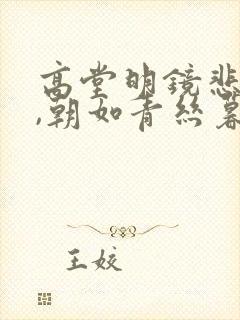 高堂明镜悲
,朝如青丝暮
王姣